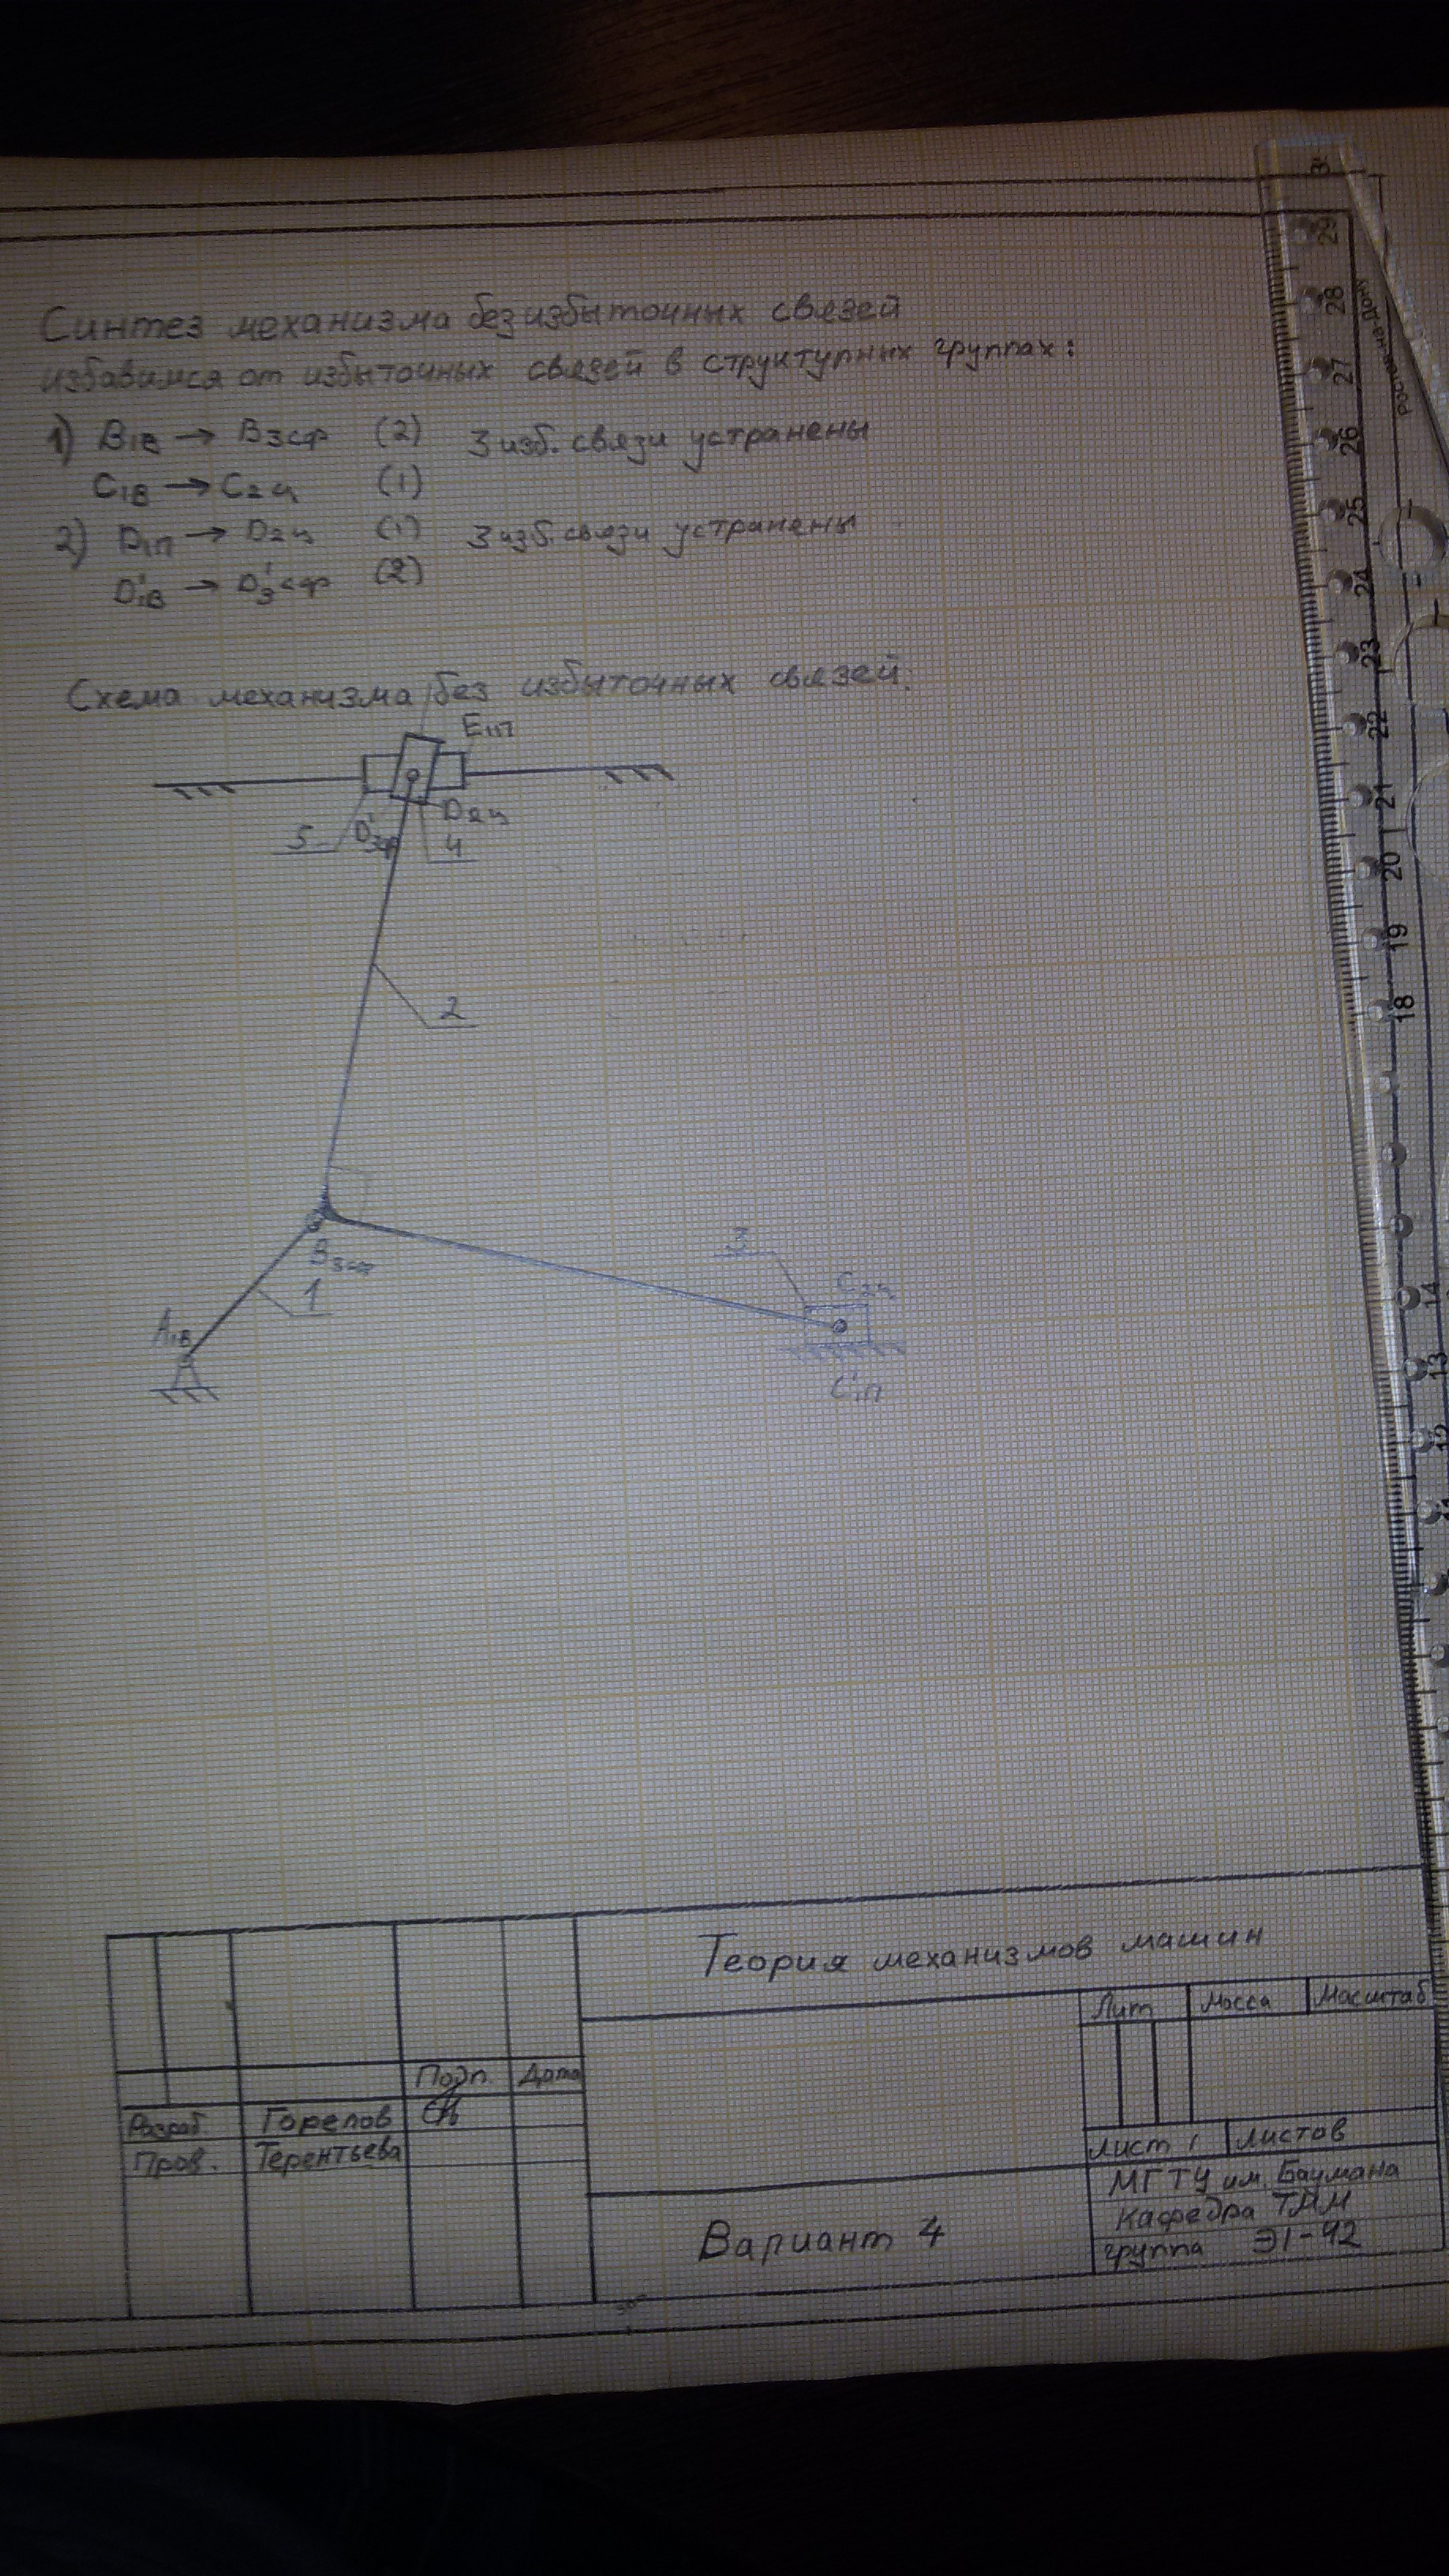 Синтез механизма без избыточных связей
избавимся от избыточных связей в структупных группах:
1) B1в → B3сф (2) 3 изб. связи устранены
C1в → C2ц (1)
2) D1п → D2ц (1) 3 изб. связи устранены
D'1в → D'3сф (2)
Схема механизма без избыточных связей.
E1п
D2ц
5 D'3сф 4
2
B3сф
1
A1в
3
C2ц
C'1п
Теория механизмов машин
Лит Масса Масштаб
Подп. Дата
Разраб Горелов
Пров. Терентьева
Лист 1 Листов
МГТУ им. Баумана
Кафедра ТММ
группа Э1-42
Вариант 4
29
28
27
26
25
24
23
22
21
20
19
18
14
13
12